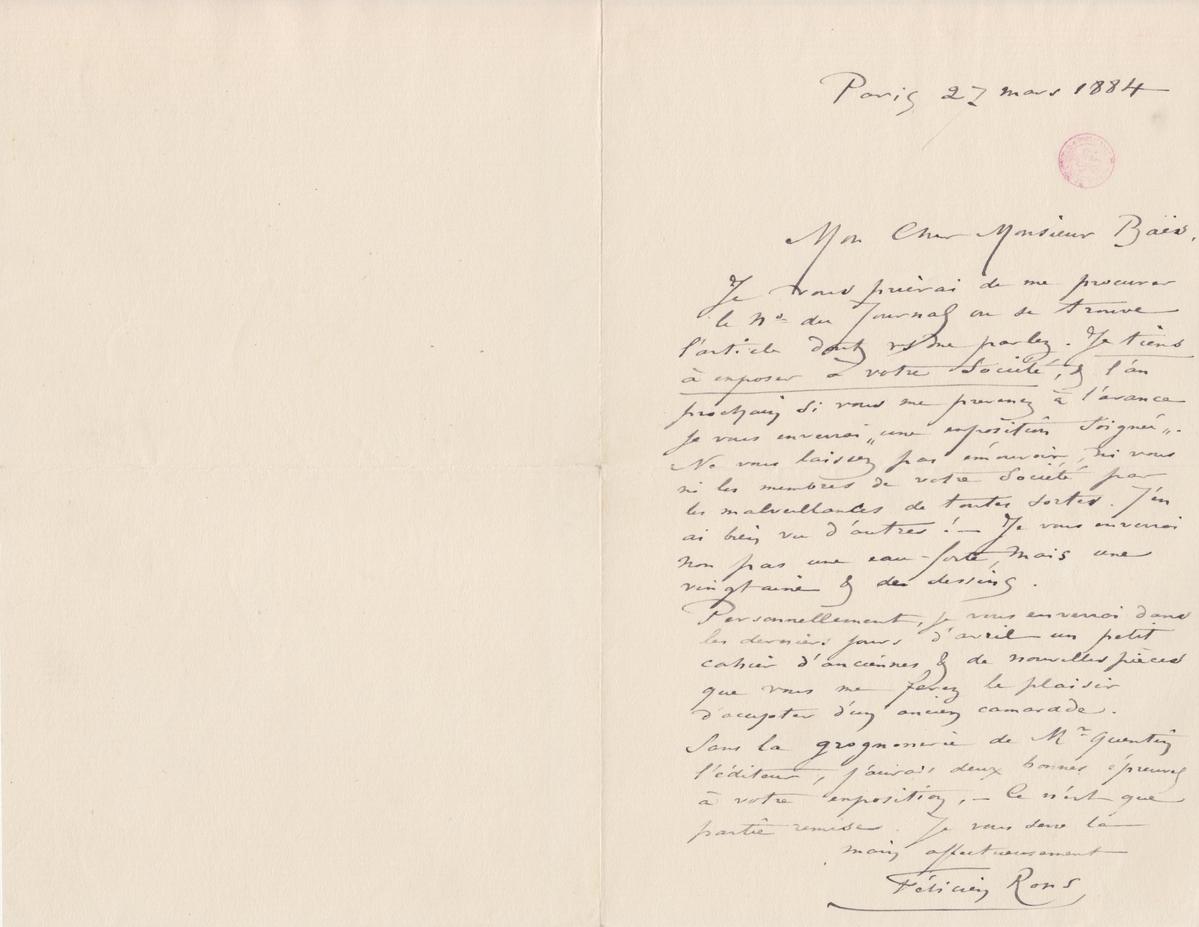 Paris 27 mars 1884
Mon Cher Monsieur Baës,
Je vous prierai de me procurer
le Nº du Journal ou se trouve
l'article dont vs me parlez. Je tiens
à exposer à votre Société, & l'an
prochain si vous me prevenez à l'avance
je vous enverrai „une exposition soignée„.
Ne vous laissez pas émouvoir, ni vous
ni les membres de votre Société par
les malveillances de toutes sortes. J'en
ai bien vu d'autres ! — Je vous enverrai
non pas une eau-forte, mais une
vingtaine & des dessins.
Personnellement, je vous enverrai dans
les derniers jours d'avril un petit
cahier d'anciennes & de nouvelles pièces
que vous me ferez le plaisir
d'accepter d'un ancien camarade.
Sans la grognonnerie de Mr Quentin
l'éditeur, j'aurais deux bonnes épreuves
à votre exposition, — Ce n'est que
partie remise. Je vous serre la
main affectueusement
Félicien Rops